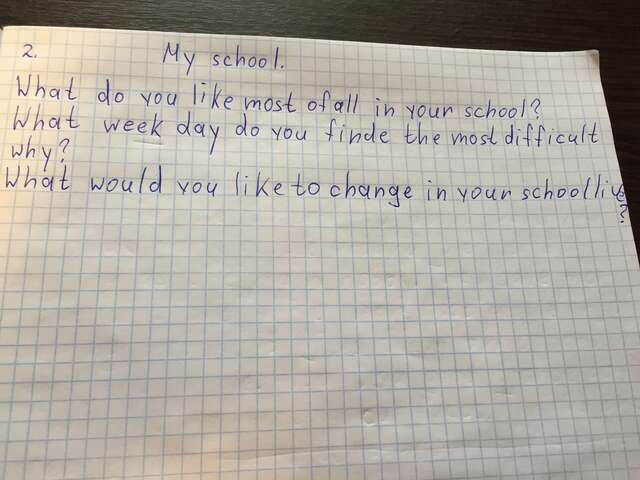 2.
My school.
What do you like most of all in your school?
What week day do you finde the most difficult
why?
What would you like to change in your school life?